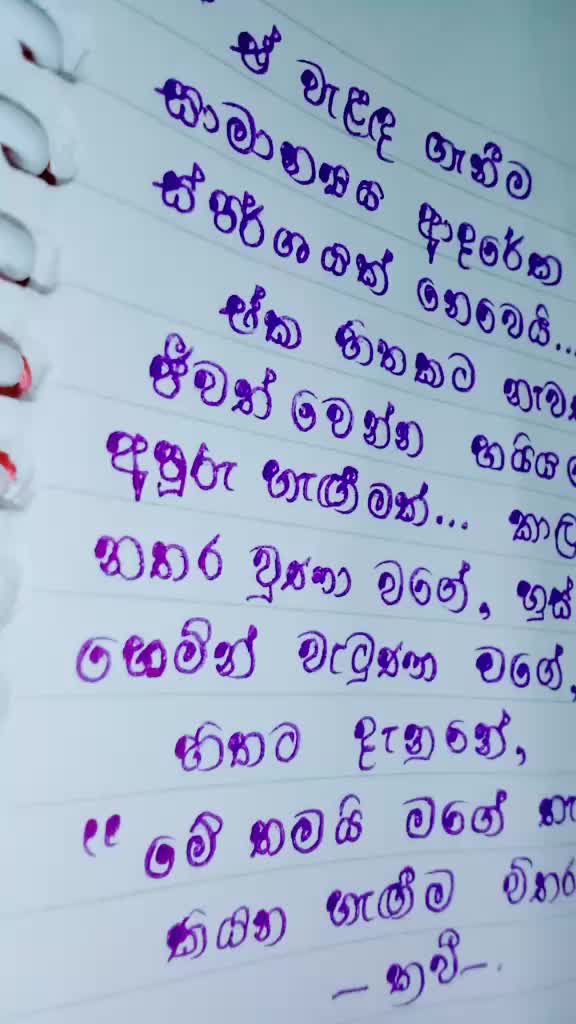 ඒ වැළඳ ගැනීම
සාමාන්‍යය ආදරේක
ස්පර්ශයක් නෙවෙයි...
ඒක හිතකට නැවත
ජීවත් වෙන්න
අපූරු හැඟීමක්... කාල
නතර වුණා වගේ, හුස්
හෙමින් වැටුණා වගේ,
හිතට දැනුනේ,
"මේ තමයි මගේ තැ
කියන හැඟීම විතර
– කවී –.